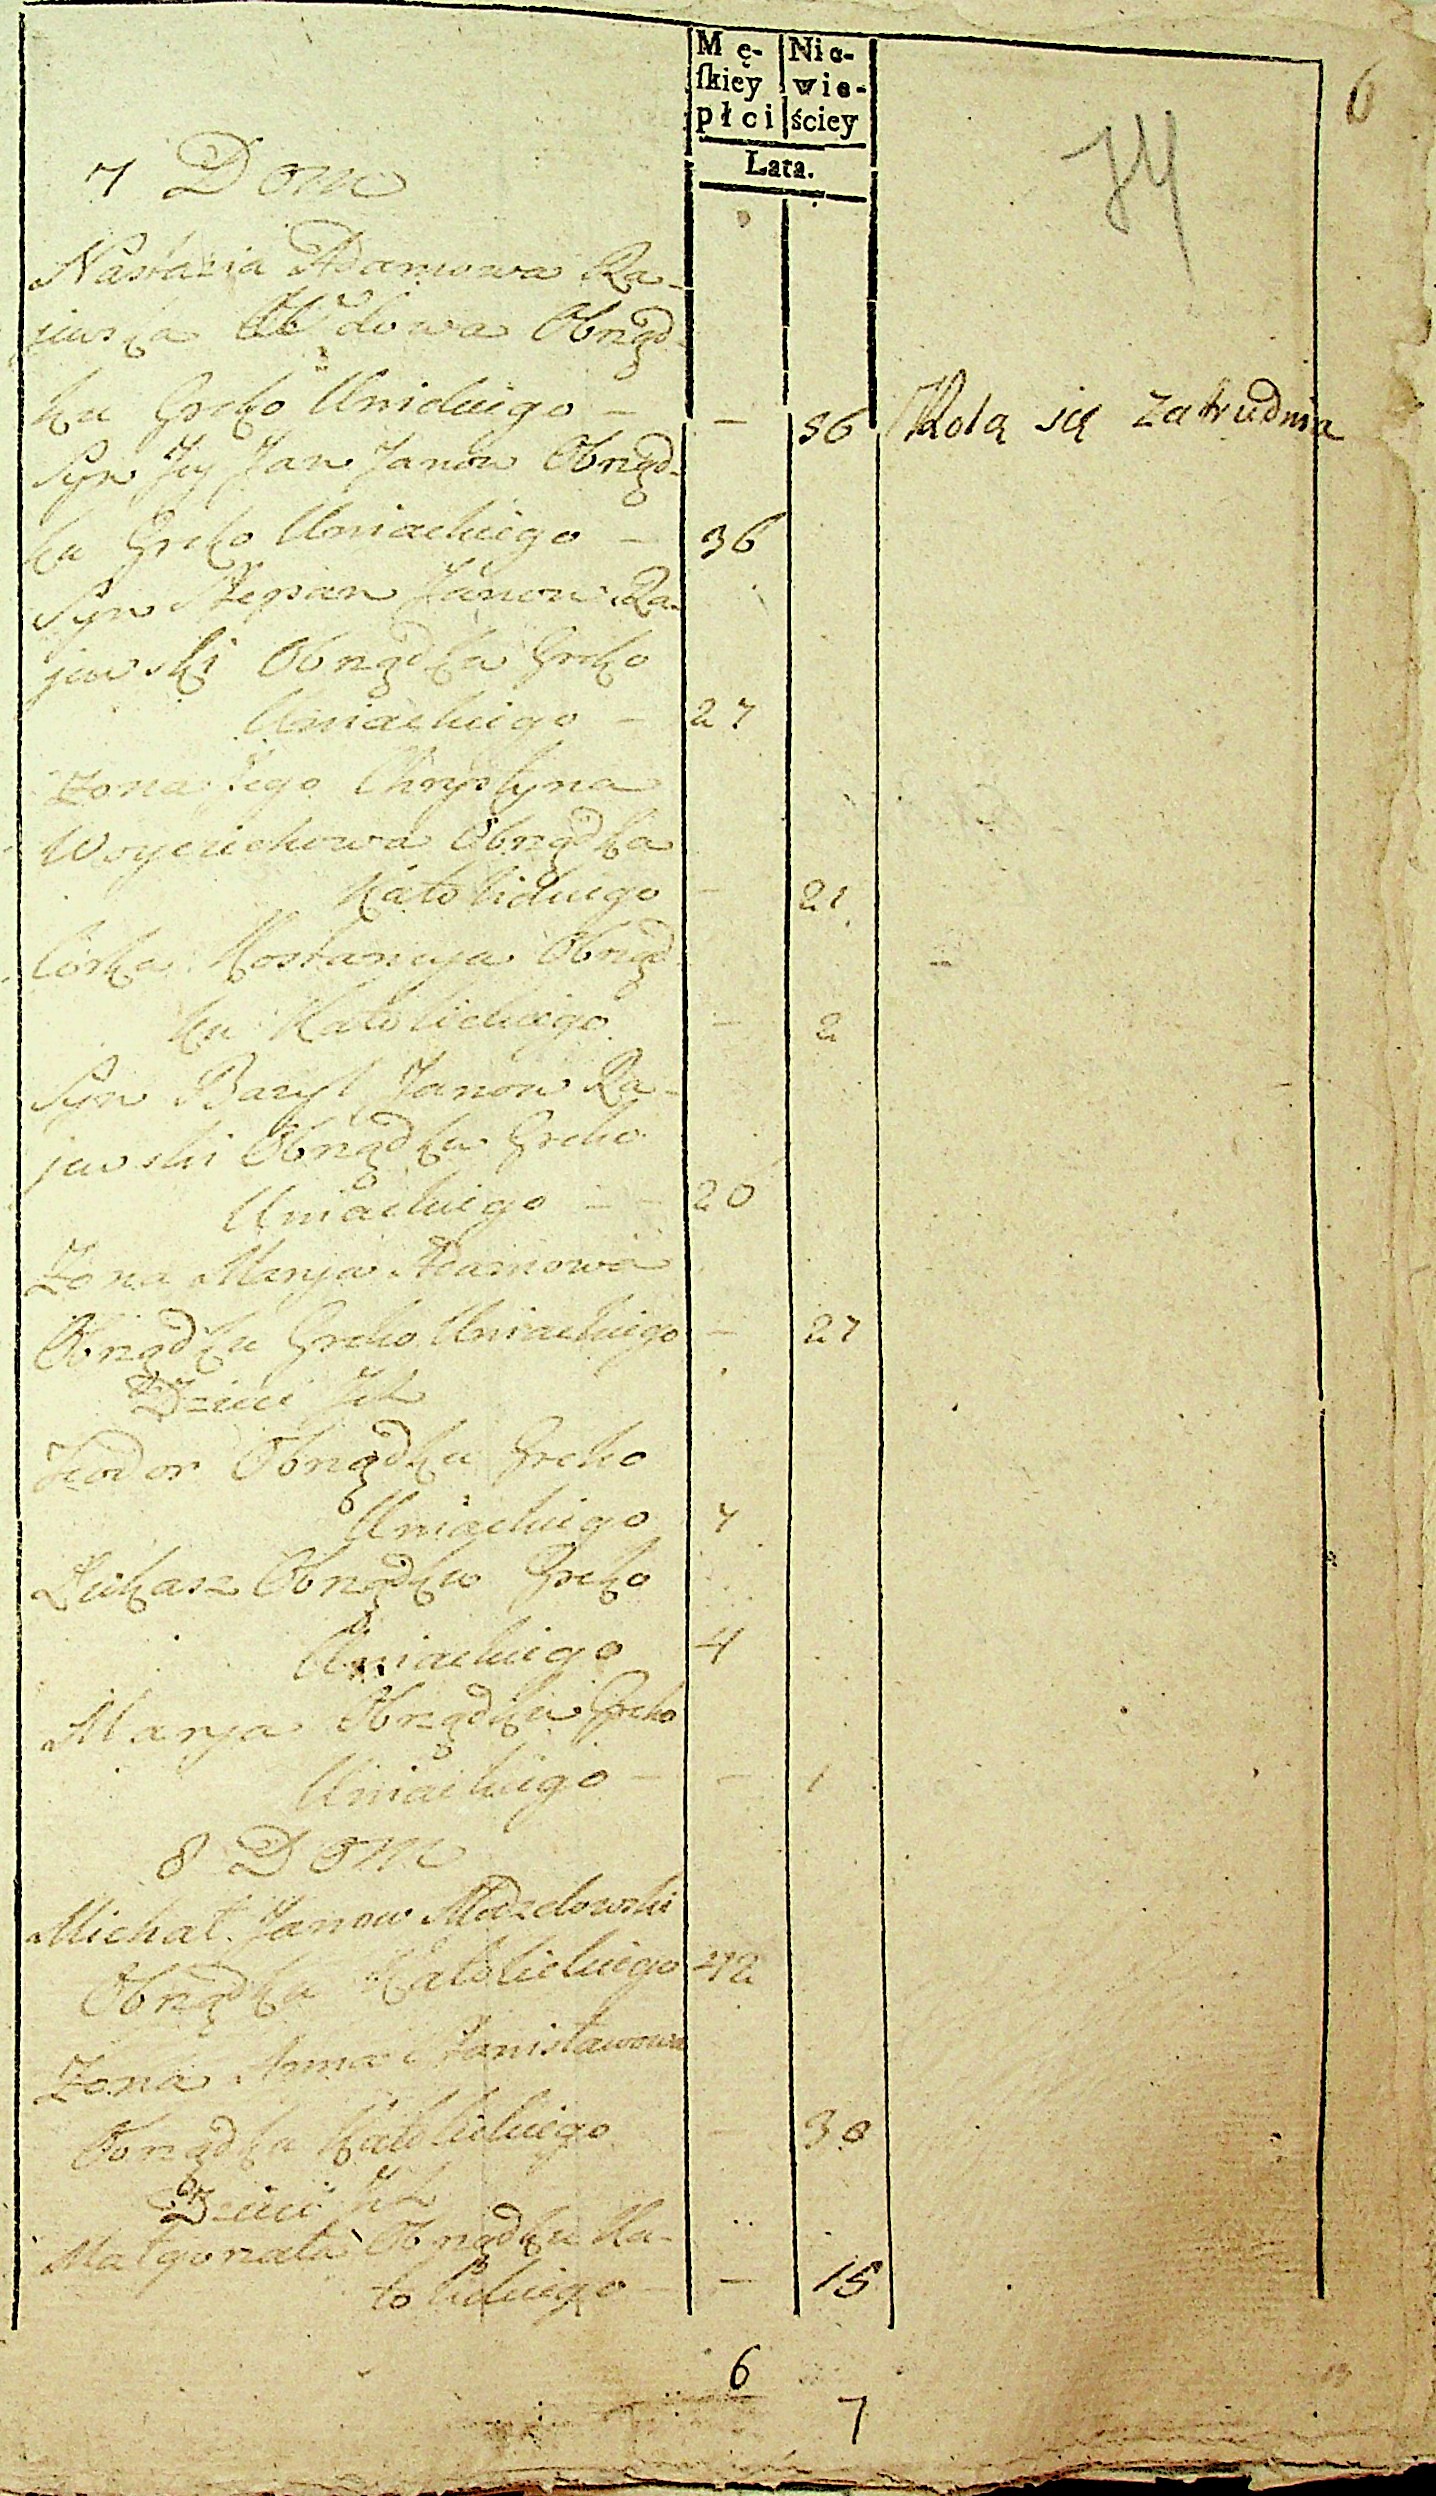 Mę- Nie-
ſkiey wie-
płci ściey
Lata.
6
74
7 Dom
Nastazia Adamowa Ra-
jewska Wdowa Obrząd-
ku Greko Unickiego — — 56 Rolą się zatrudnia
Syn Jey Jan Janow Obrząd-
ku Greko Uniackiego — 36
Syn Stepan Janow Ra-
jewski Obrządku Greko
Uniackiego — 27
Zona Jego Chrystyna
Woyciechowa Obrządku
Katolickiego — 21
Córka Kostancyja Obrząd-
ku Katolickiego — 2
Syn Bazyl Janow Ra-
jewski Obrządku Greko
Uniackiego — 20
Zona Marja Adamowa
Obrządku Greko Uniackiego — 27
Dzieci Ich
Teodor Obrządku Greko
Uniackiego 7
Łukasz Obrządku Greko
Uniackiego 4
Marja Obrządku Greko
Uniackiego — — 1
8 Dom
Michał Janow
Obrządku Katolickiego 42
Zona Anna Stanisławowa
Obrządku Katolickiego — 30
Dzieci Ich
Małgorzata Obrządku Ka-
tolickiego — — 15
6
7